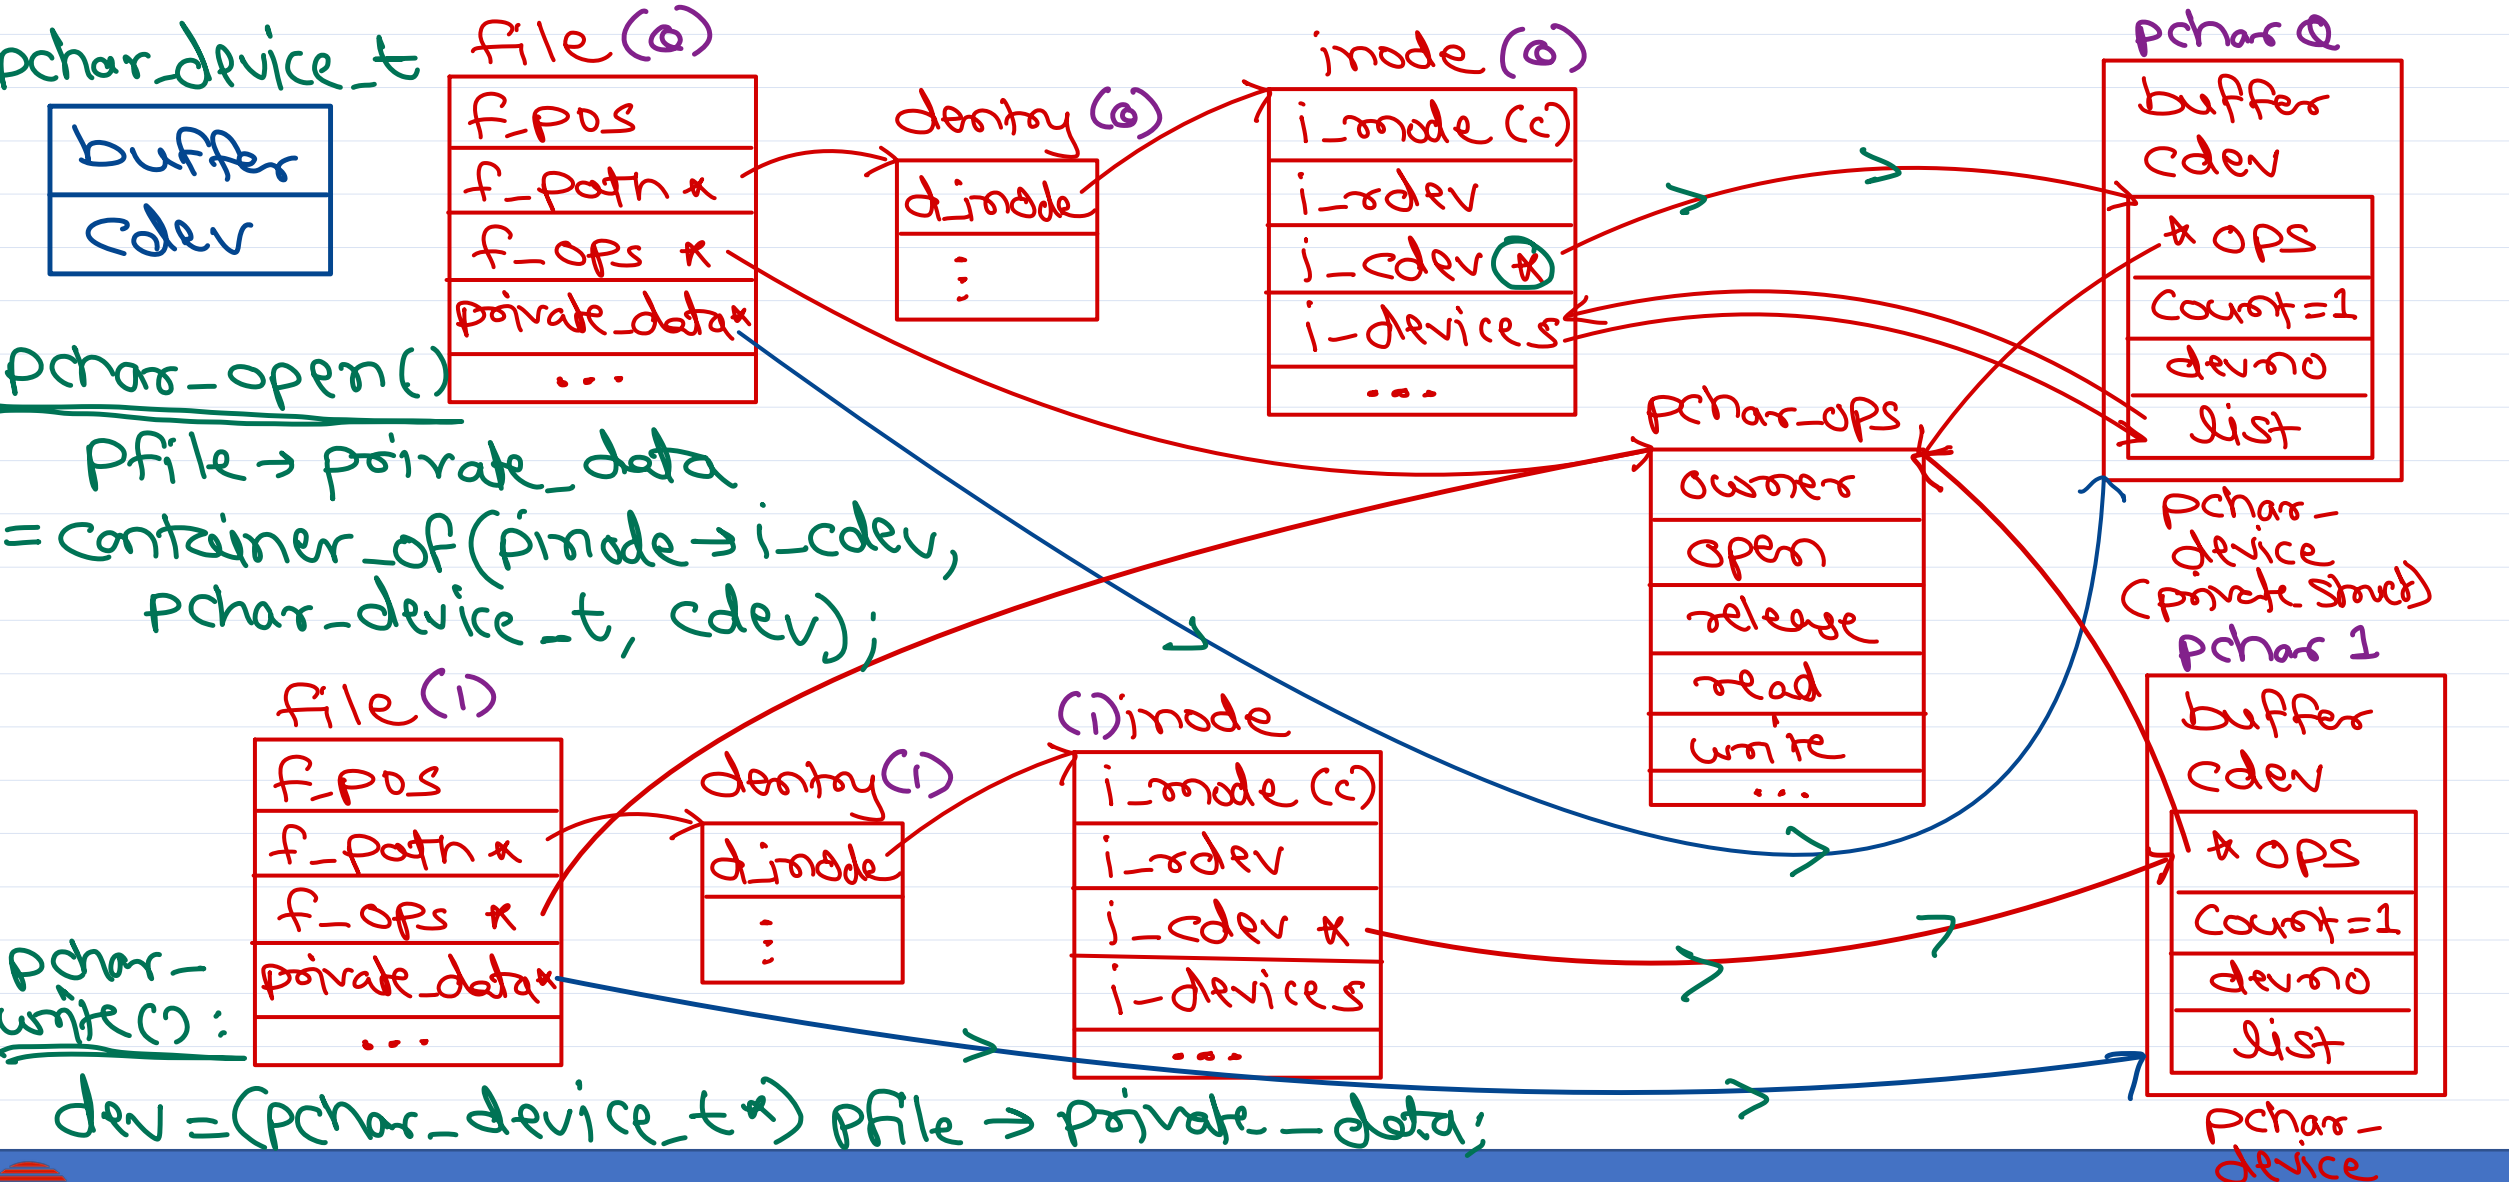 pchar_device_t
buffer
cdev
file (0)
f_pos
f_path *
f_ops *
private_data *
...
dentry (0)
d_inode
inode (0)
i_mode (c)
i_rdev
i_cdev *
i_devices
...
pchar 0
buffer
cdev
* ops
count=1
devno
list
pchar_
device
(private struct)
pchar_open()
pfile->private_data
= container_of(inode->i_cdev,
pchar_device_t, cdev);
pchar_ops
owner
open
release
read
write
...
file (1)
f_pos
f_path *
f_ops *
private_data *
...
dentry (1)
d_inode
(1) inode
i_mode (c)
i_rdev
i_cdev *
i_devices
...
pchar 1
buffer
cdev
* ops
count=1
devno
list
pchar_
device
pchar_
write():
dev=(pchar_device_t*)pfile->private_data;